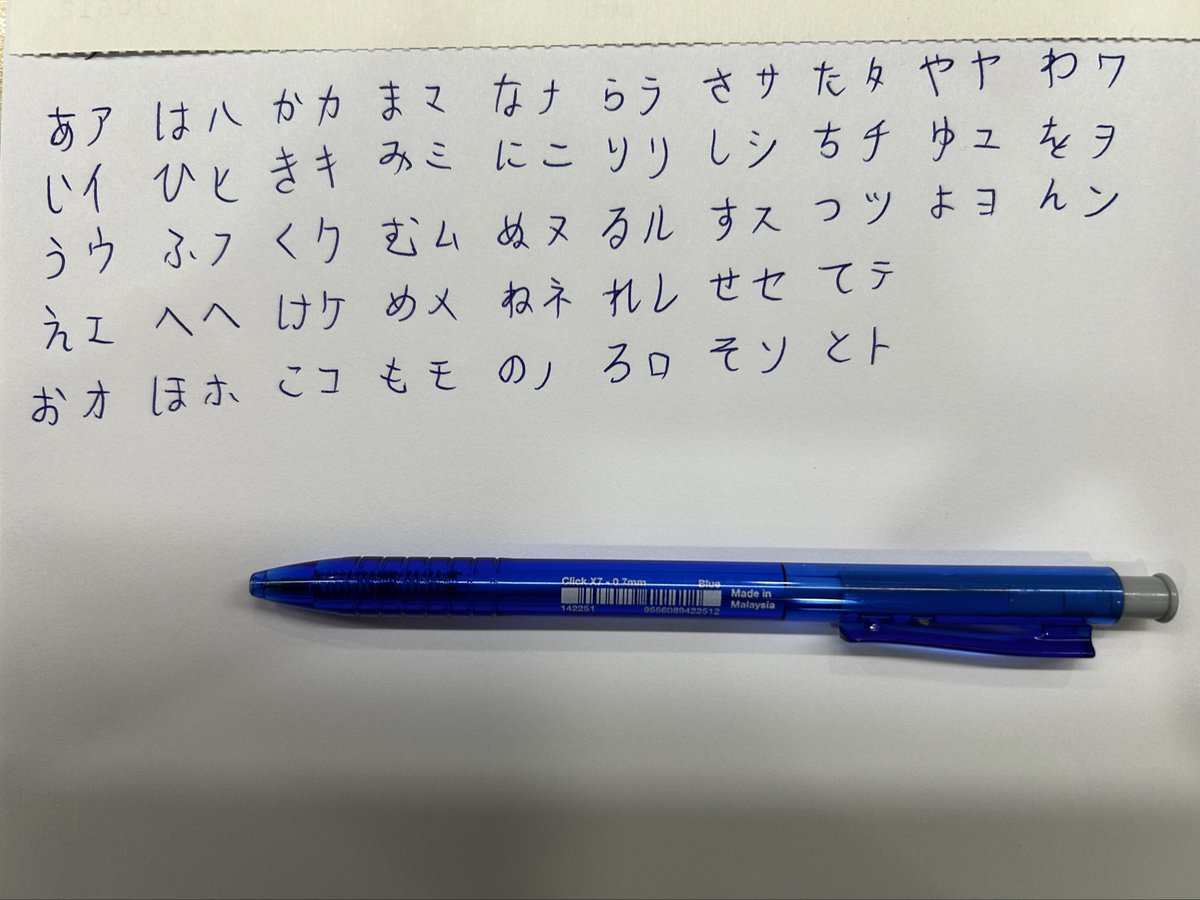 あア はハ かカ まマ なナ らラ さサ たタ やヤ わワ
いイ ひヒ きキ みミ にニ りリ しシ ちチ ゆユ をヲ
うウ ふフ くク むム ぬヌ るル すス つツ よヨ んン
えエ へヘ けケ めメ ねネ れレ せセ てテ
おオ ほホ こコ もモ のノ ろロ そソ とト
Click X7 - 0.7mm Blue
142251 9556089422512
Made in
Malaysia